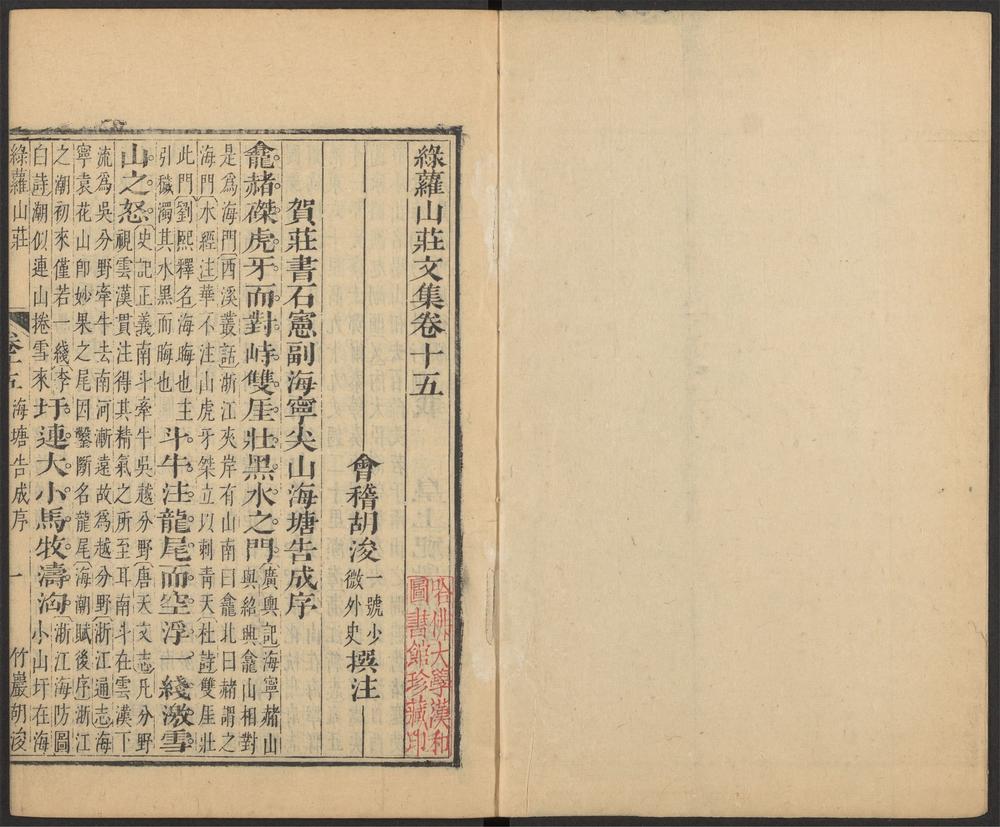 綠蘿山莊文集卷十五
會稽胡浚一號少微外史撰注
賀莊書石憲副海寧尖山海塘告成序
龕赭磔虎牙而對峙雙厓壯黑水之門廣輿記海寧赭山與紹興龕山相對
是爲海門西溪叢話浙江夾岸有山南曰龕北曰赭謂之
海門水經注華不注山虎牙桀立以刺青天杜詩雙厓壯
此門劉熙釋名海晦也主
引穢濁其水黑而晦也斗牛注龍尾而空浮一綫激雪
山之怒史記正義南斗牽牛吳越分野唐天文志凡分野
視雲漢貫注得其精氣之所至耳南斗在雲漢下
流爲吳分野牽牛去南河漸遠故爲越分野浙江通志海
寧袁花山卽妙果之尾因鑿斷名龍尾海潮賦後序浙江
之潮初來僅若一綫李
白詩潮似連山捲雪來圩連大小馬牧濤洶浙江海防圖
小山圩在海
綠蘿山莊 卷十五 海塘告成序 一 竹巖胡浚
哈佛大學漢和
圖書館珍藏印